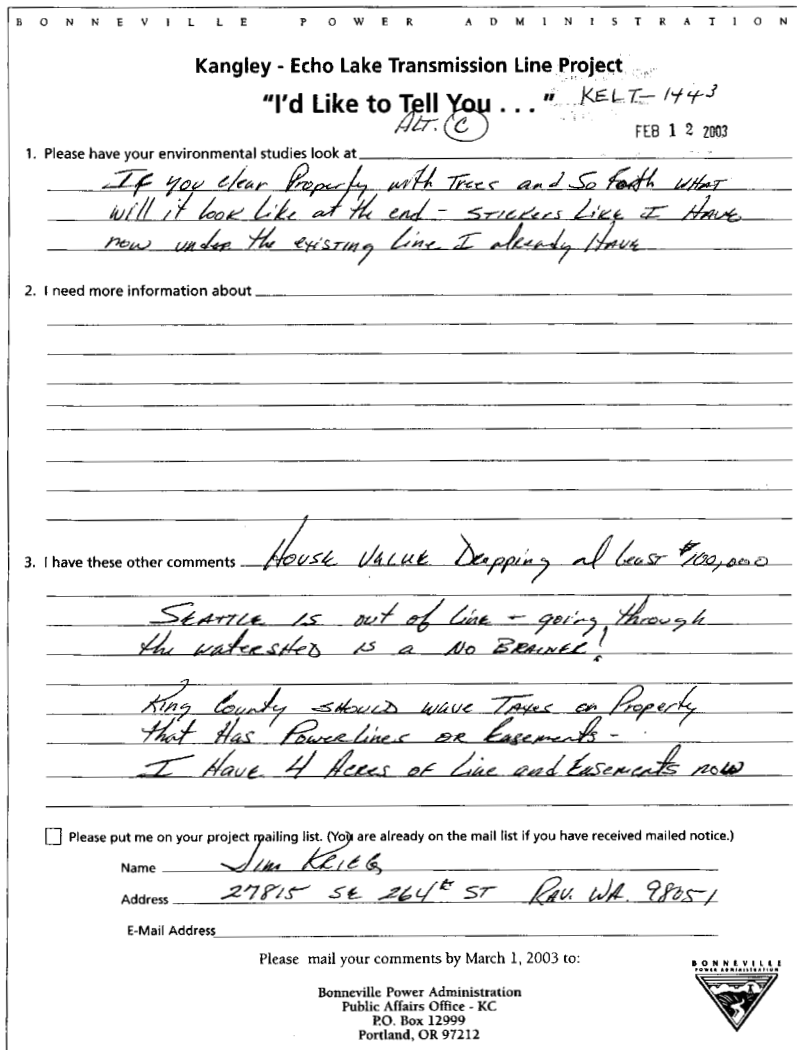 BONNEVILLE POWER ADMINISTRATION
Kangley - Echo Lake Transmission Line Project
"I'd Like to Tell You . . . " KELT-1443
ALT. C
FEB 12 2003
1. Please have your environmental studies look at
If you clear Property with Trees and So Forth WHAT
will it look Like at the end - STICKERS LIKE I HAVE
now under the existing Line I already HAVE
2. I need more information about
3. I have these other comments House VALUE Dropping at least $100,000
SEATTLE IS out of Line - going through
the watershed is a No BRAINER!
King County SHOULD wave TAXES on Property
that Has Powerlines OR Easements -
I HAVE 4 Acres of Line and Easements now
Please put me on your project mailing list. (You are already on the mail list if you have received mailed notice.)
Name Jim KRIEG
Address 27815 SE 264th ST RAV. WA. 98051
E-Mail Address
Please mail your comments by March 1, 2003 to:
BONNEVILLE
POWER ADMINISTRATION
Bonneville Power Administration
Public Affairs Office - KC
P.O. Box 12999
Portland, OR 97212